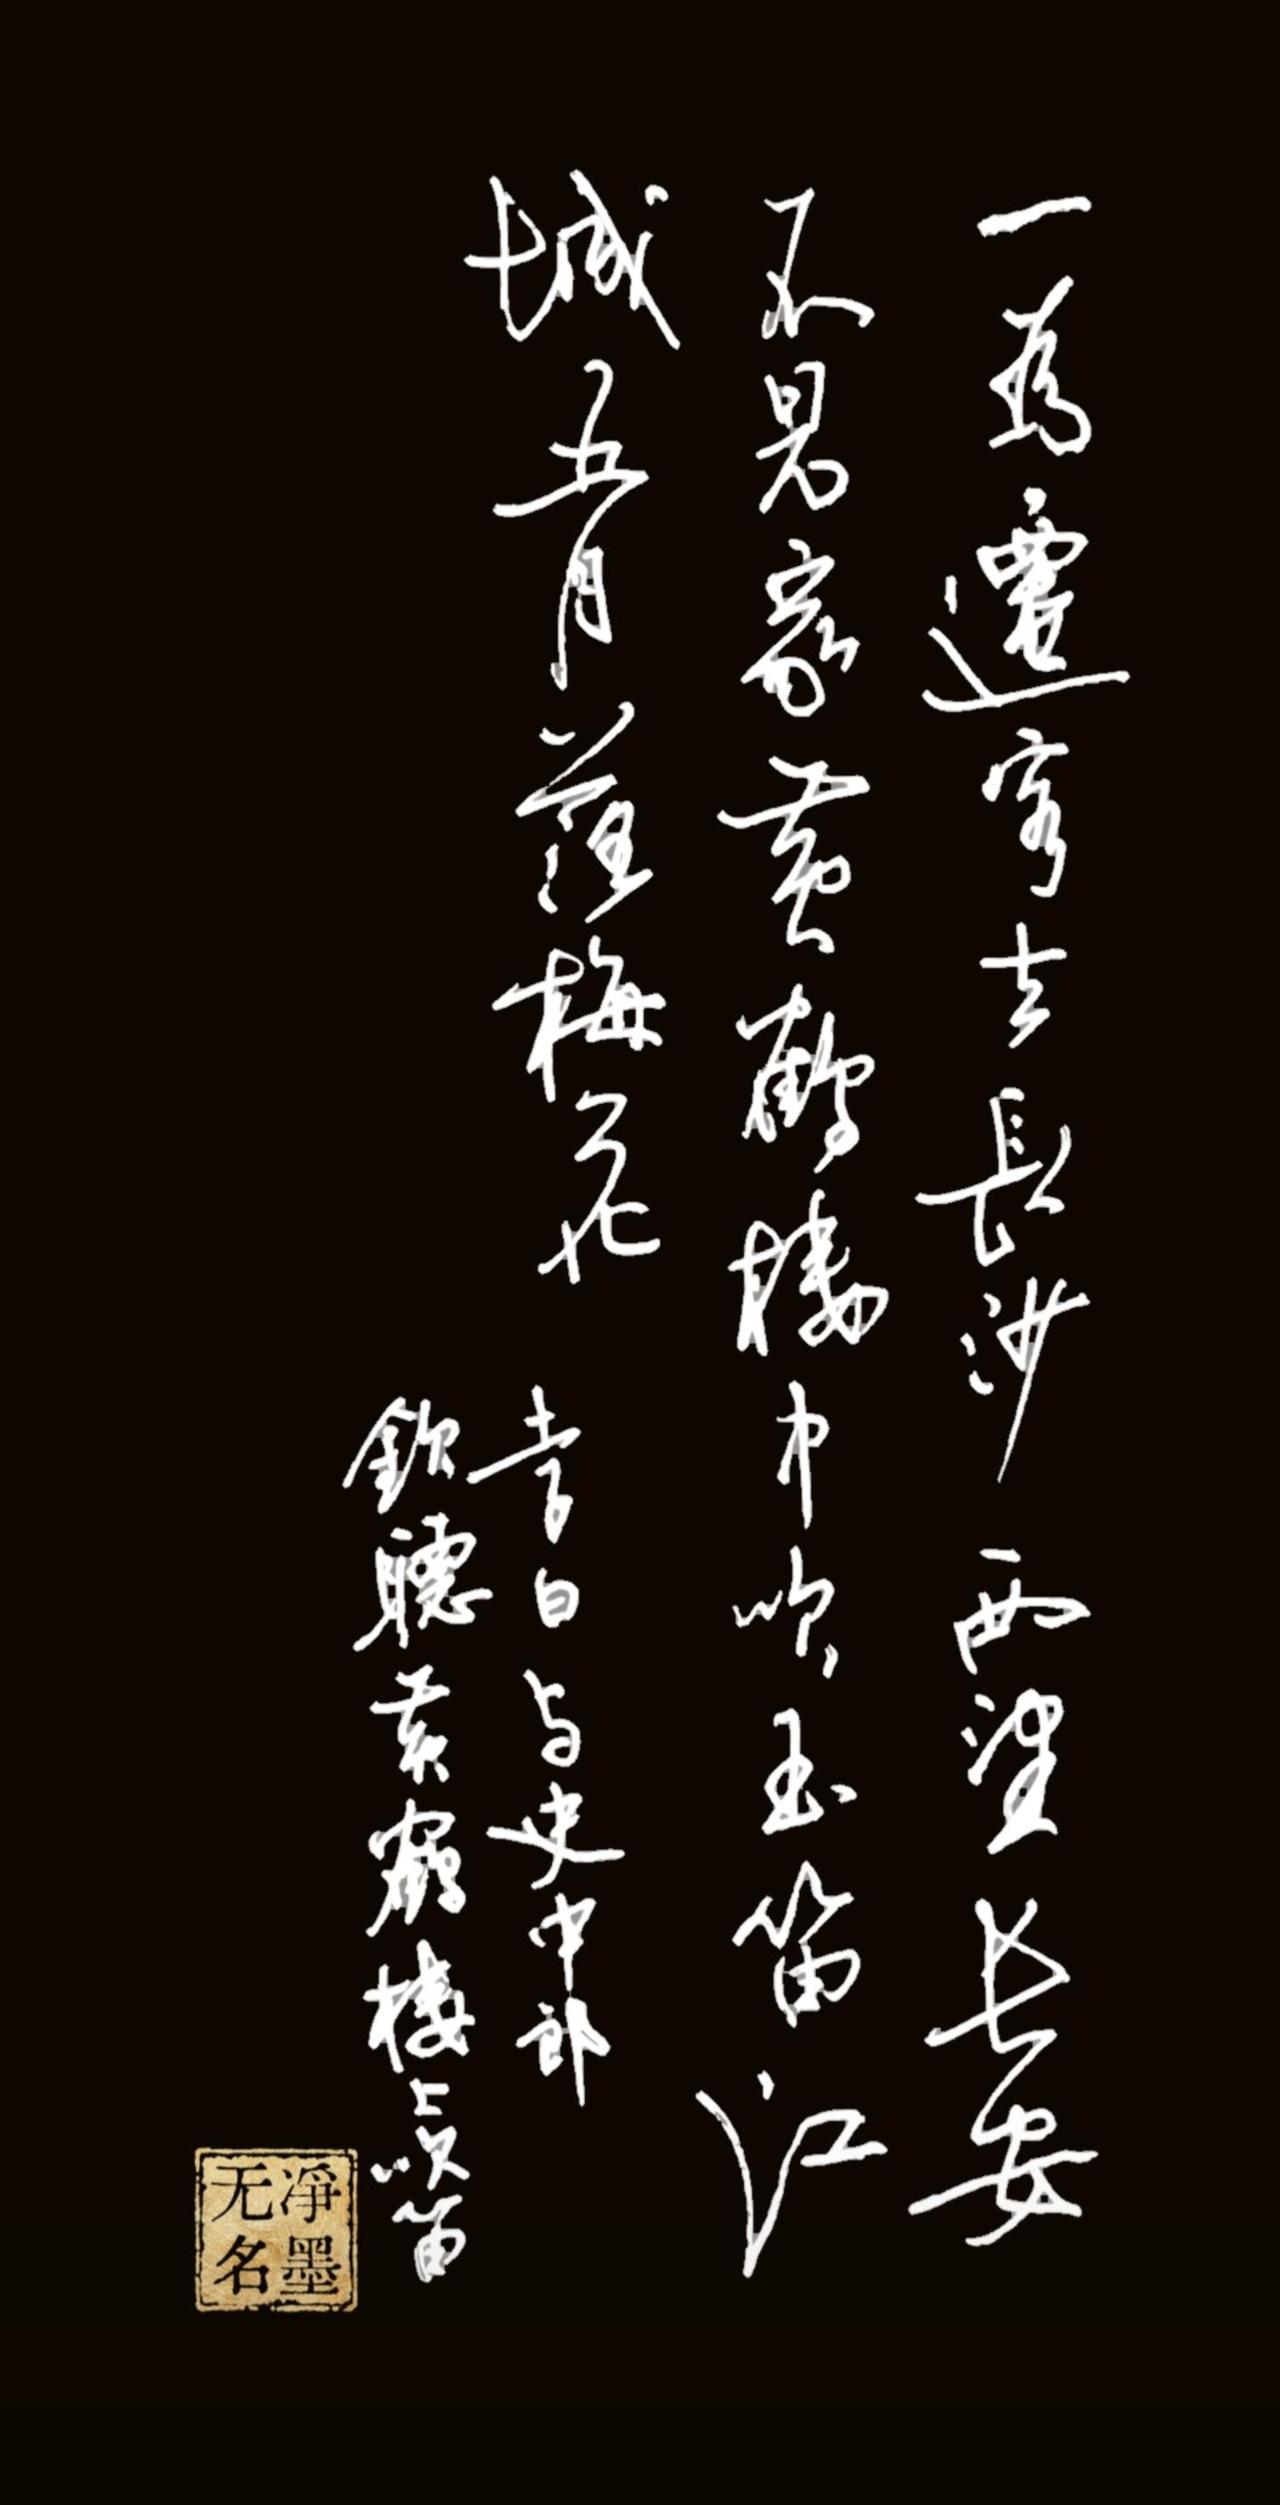 一為遷客去長沙 西望长安
不見家黃鶴樓中吹玉笛江
城五月落梅花
李白与史中郎
欽聽黄鶴楼上吹笛
淨墨
无名